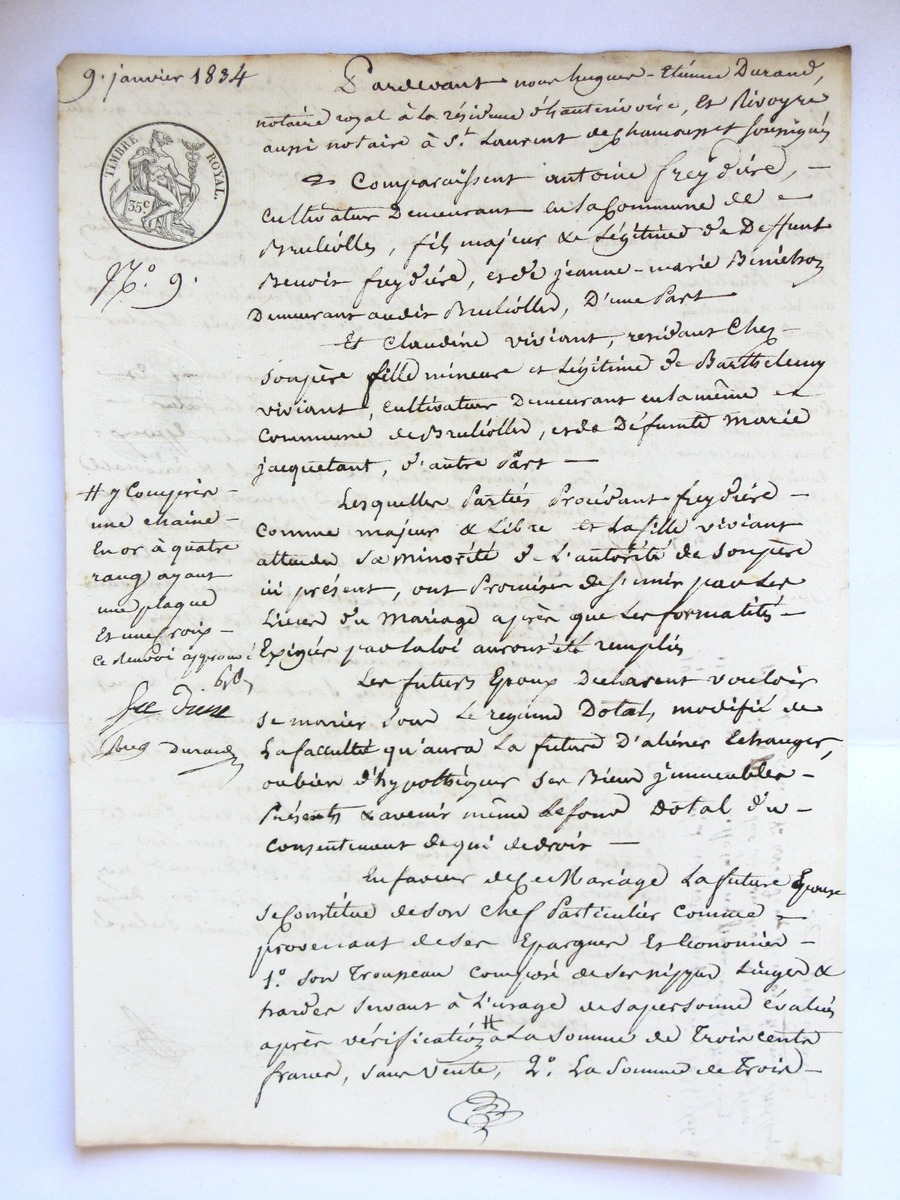 9. janvier 1834
TIMBRE ROYAL.
35 c
N.° 9.
Pardevant nous hugues-Etienne Durand,
notaire royal à la résidence d'hauterivoire, Et Rivoyre
aussi notaire à St. Laurent de Chamousset soussignés
Comparaissent antoine freydière, —
Cultivateur Demeurant en la Commune de
Brulliolles, fils majeur & Légitime de Deffunt
Benoit freydière, et de jeanne-marie
Demeurant audit Brulliolles, D'une Part
Et Claudine viviant, residant Chez
son père fille mineure et Légitime de Barthelemy
viviant, cultivateur Demeurant en la même
Commune de Brulliolles, et de Défunte Marie
jacquetant, d'autre Part —
Lesquelles Parties Procédant freydière —
Comme majeur & Libre et La fille viviant
attendu Sa minorité de L'autorité de son père
ici présent, ont Promises de s'unir par Les
Liens du Mariage après que Les formalités —
Exigées par la loi auront été remplies
Les futurs Epoux Déclarent vouloir
se marier sous Le régime Dotal, modifié de
La faculté qu'aura La future D'aliéner Echanger,
ou bien d'hypothéquer ses Biens immeubles —
Présents & avenir même Le fond Dotal du —
Consentement de qui de droit —
En faveur de Ce Mariage La future Epouse
se Constitue de son Chef Particulier Comme —
provenant de ses Epargnes Et Economies —
1.° son Trousseau Composé de ses nippes Linges &
hardes servant à L'usage de sa personne évalués
après vérification # à La somme de Trois cents
francs, sans vente, 2.° La somme de Trois —
# y Compris —
une chaîne —
En or à quatre
rangs ayant
une plaque
Et une Croix —
Ce Renvoi approuvé
Durand